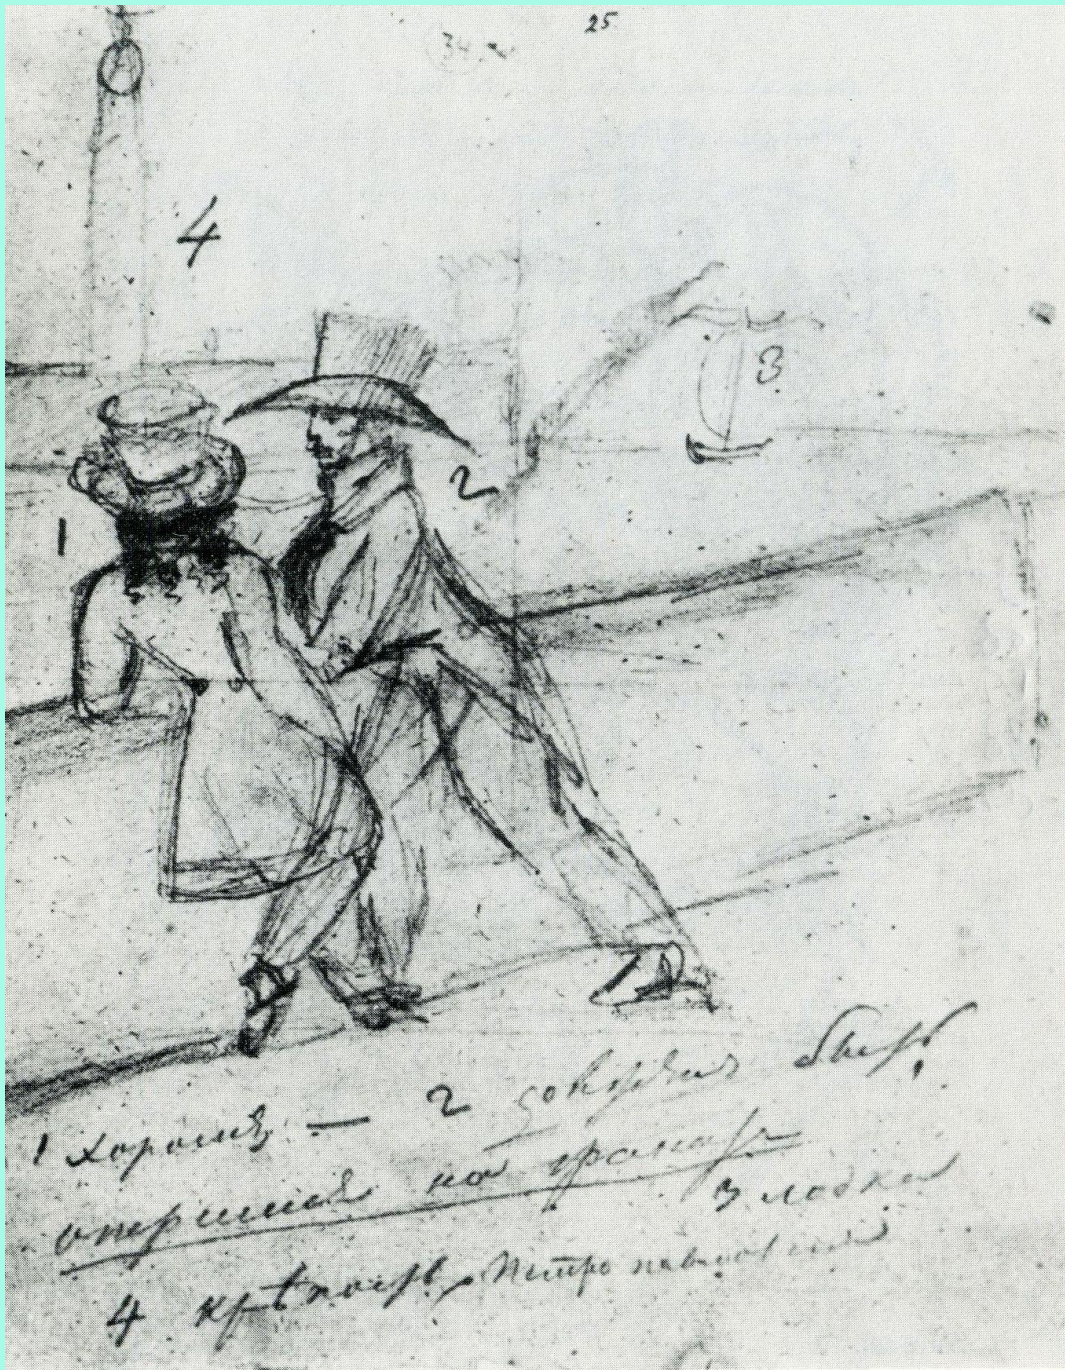 25
4
3
2
1
1 хорошъ — 2 долженъ быть
опершися на гранитъ
3 лодка
4 крѣпость, Петропавловская